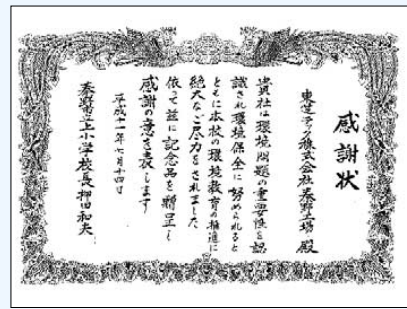 感謝状
東芝テック株式会社秦野工場殿
貴社は環境問題の重要性を認
識され環境保全に努められると
ともに本校の環境教育の推進に
絶大なご尽力をされました
依って茲に記念品を贈呈し
感謝の意を表します
平成十一年七月十四日
秦野市立上小学校長 柳田和夫